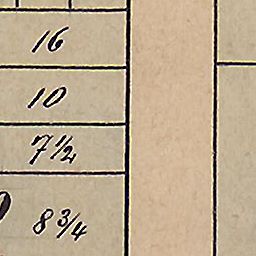 16
10
7½
8¾